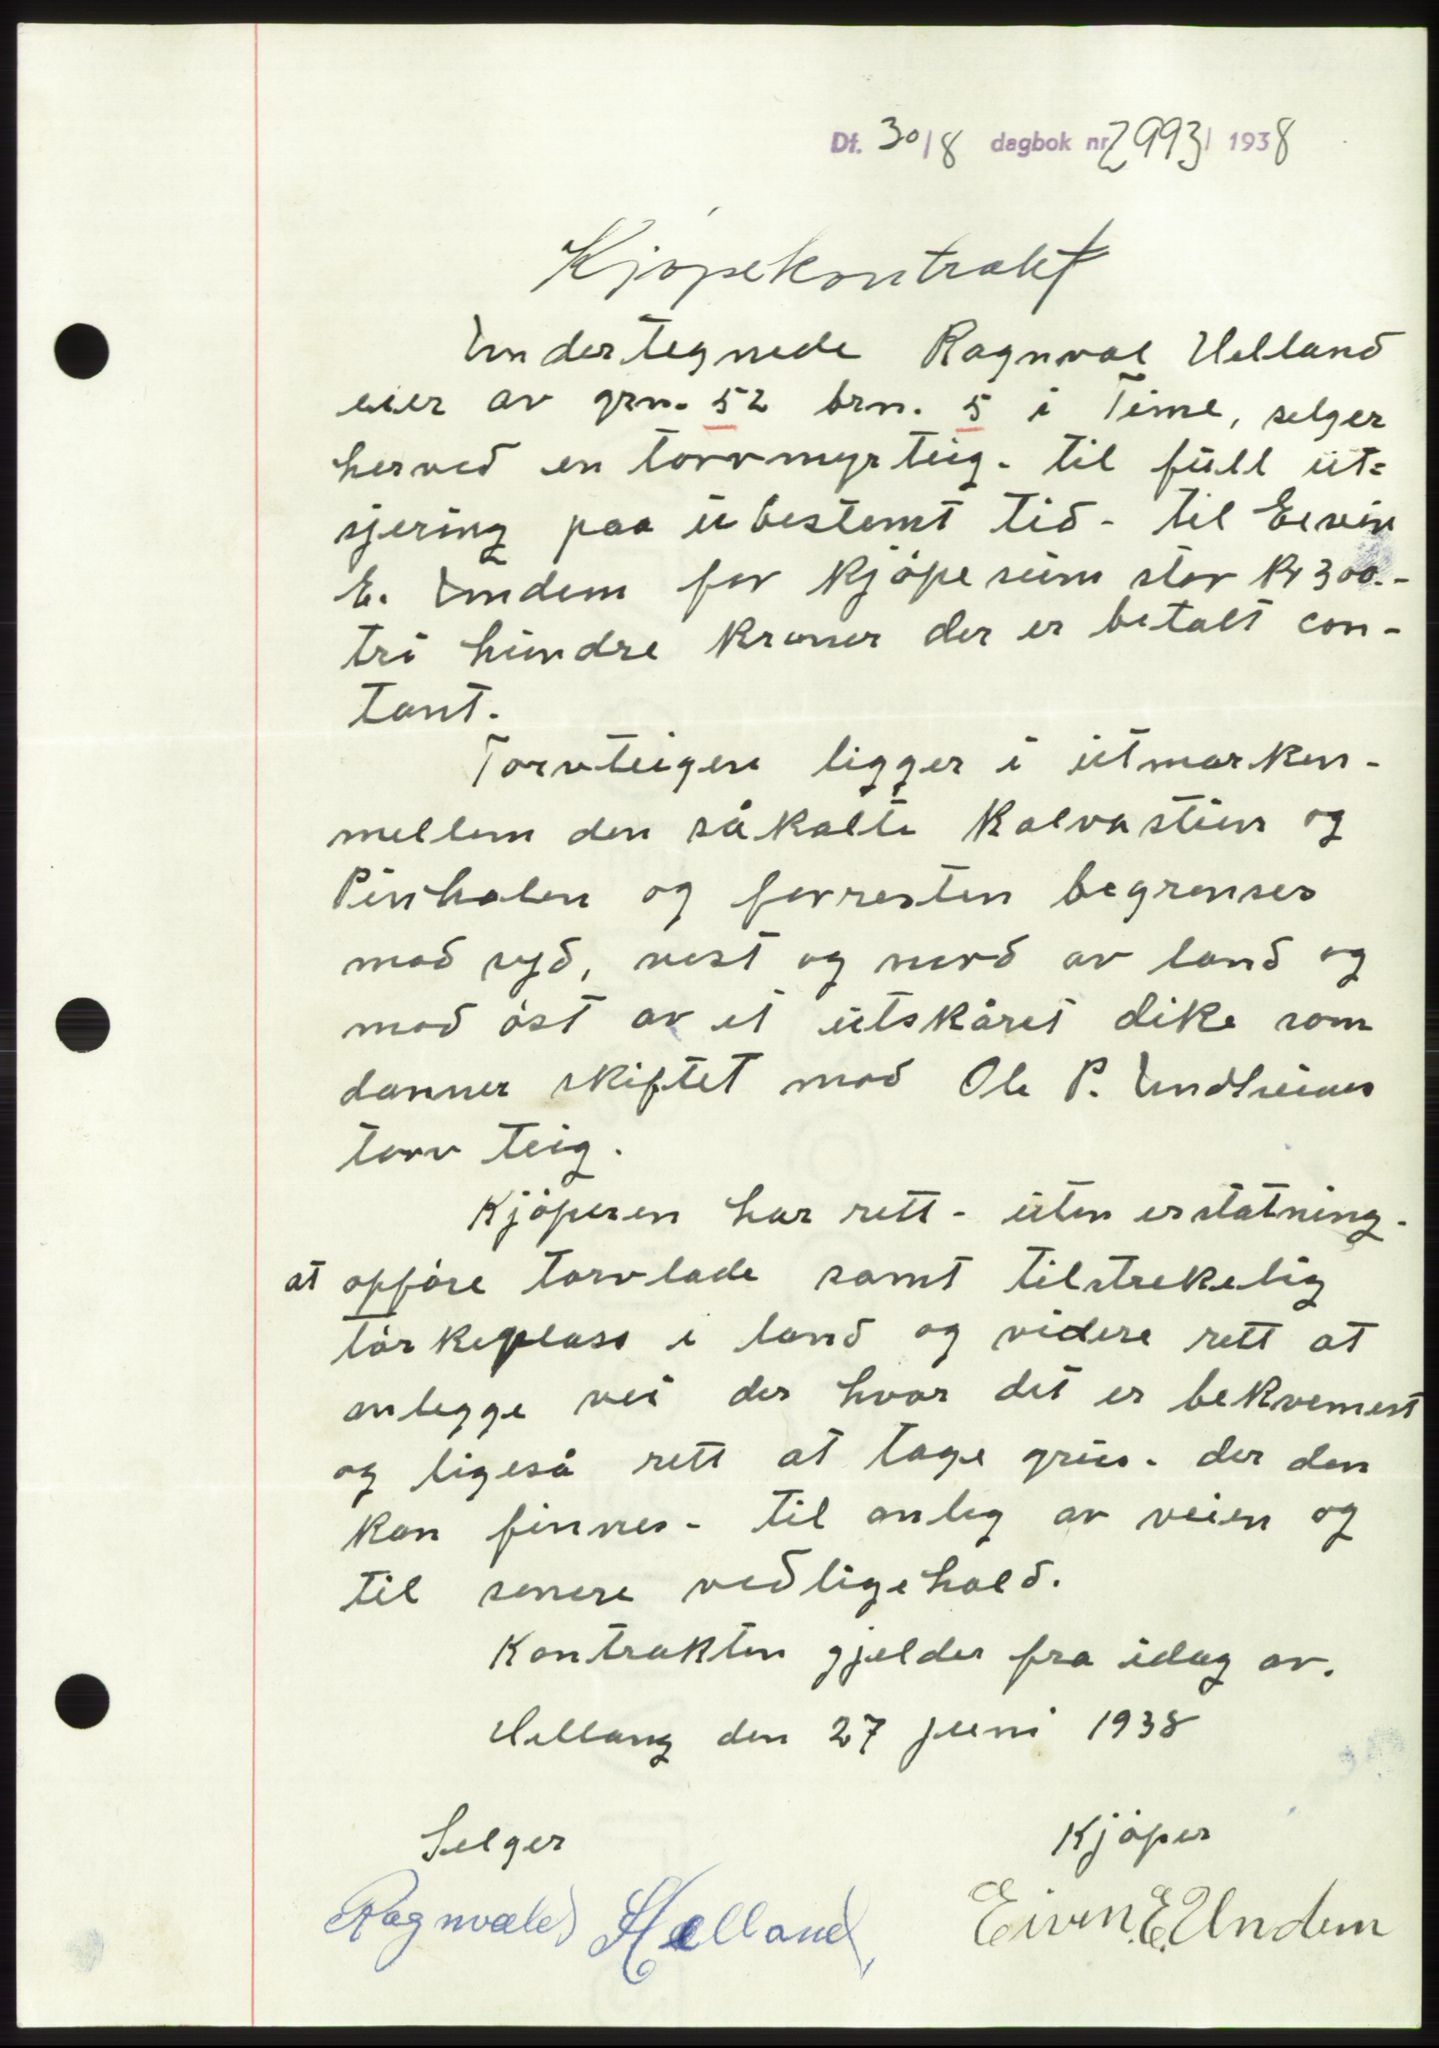 Df. 30/8 dagbok nr 2993/ 1938
Kjöpekontrakt
Undertegnede Ragnval Helland
eier av grn. 52 brn. 5 i Time, selger
herved en torvmyrteig - til full ut=
sjering paa ubestemt tid - til Eevin
E. Undem for kjöpesum stor kr 300.-
tri hundre kroner der er betalt con-
tant.
Torvteigen ligger i utmarken -
mellem den såkalte Kalvastien og
Pinhalen og forresten begrenses
mod syd, vest og nord av land og
mod öst av et utskåret dike som
danner skiftet mod Ole P. Undheims
torv teig.
Kjöperen har rett - uten erstatning -
at opföre torvlade samt tilstrekelig
törkeplass i land og videre rett at
anlegge vei der hvor det er bekvemest
og ligeså rett at tage grus - der den
kan finnes - til anleg av veien og
til senere vedligehold.
Kontrakten gjelder fra idag av.
Helland den 27 juni 1938
Selger
Kjöper
Ragnvald Helland
Eivin. E. Undem